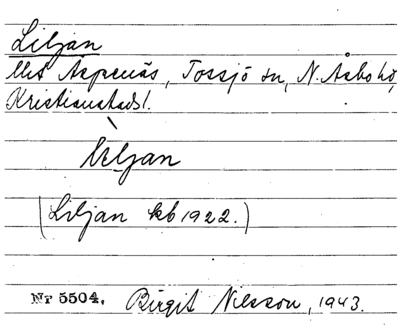 Liljan
Aspenäs, Tossjö sn, N. Åsbo hd,
Kristianstads l.
(Liljan kb 1922.)
Nr 5504. Birgit Nilsson, 1943.